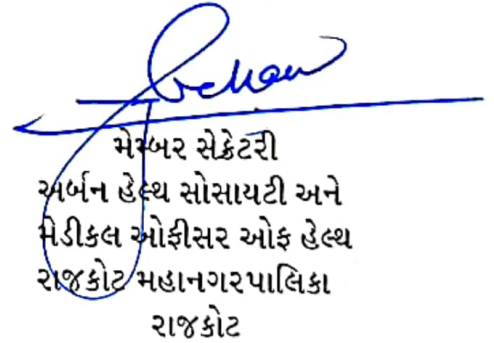 મેમ્બર સેક્રેટરી
અર્બન હેલ્થ સોસાયટી અને
મેડીકલ ઓફીસર ઓફ હેલ્થ
રાજકોટ મહાનગરપાલિકા
રાજકોટ